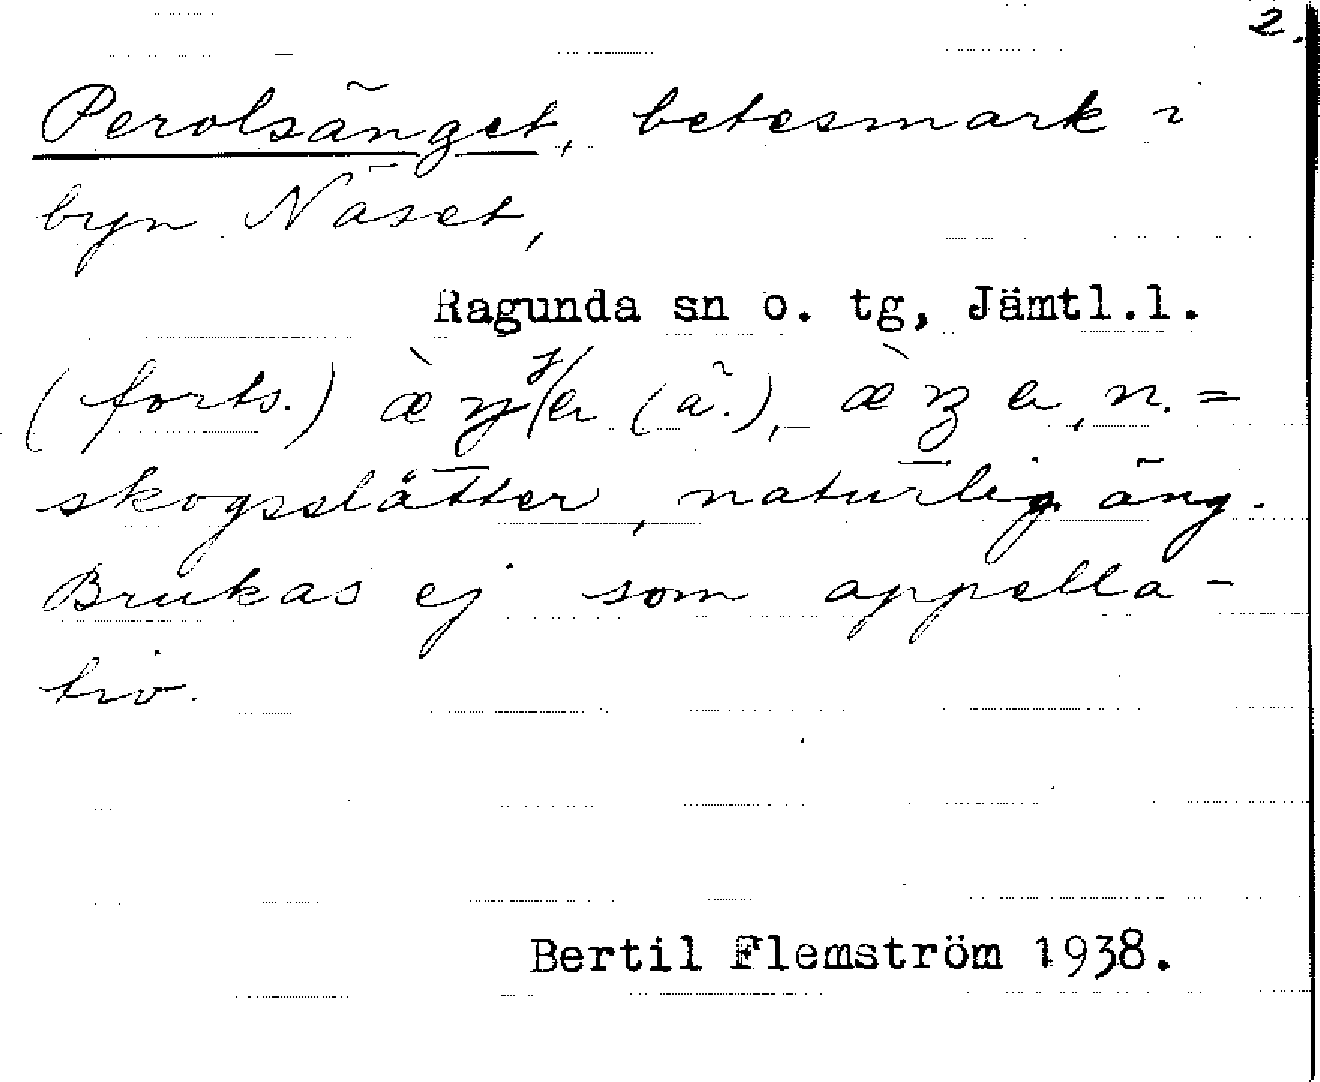 2.
Perolsänget, betesmark i
byn Näset,
Ragunda sn o. tg, Jämtl.l.
(forts.) (ä.), n. =
skogsslåtter, naturlig äng.
Brukas ej som appella-
tiv.
Bertil Flemström 1938.